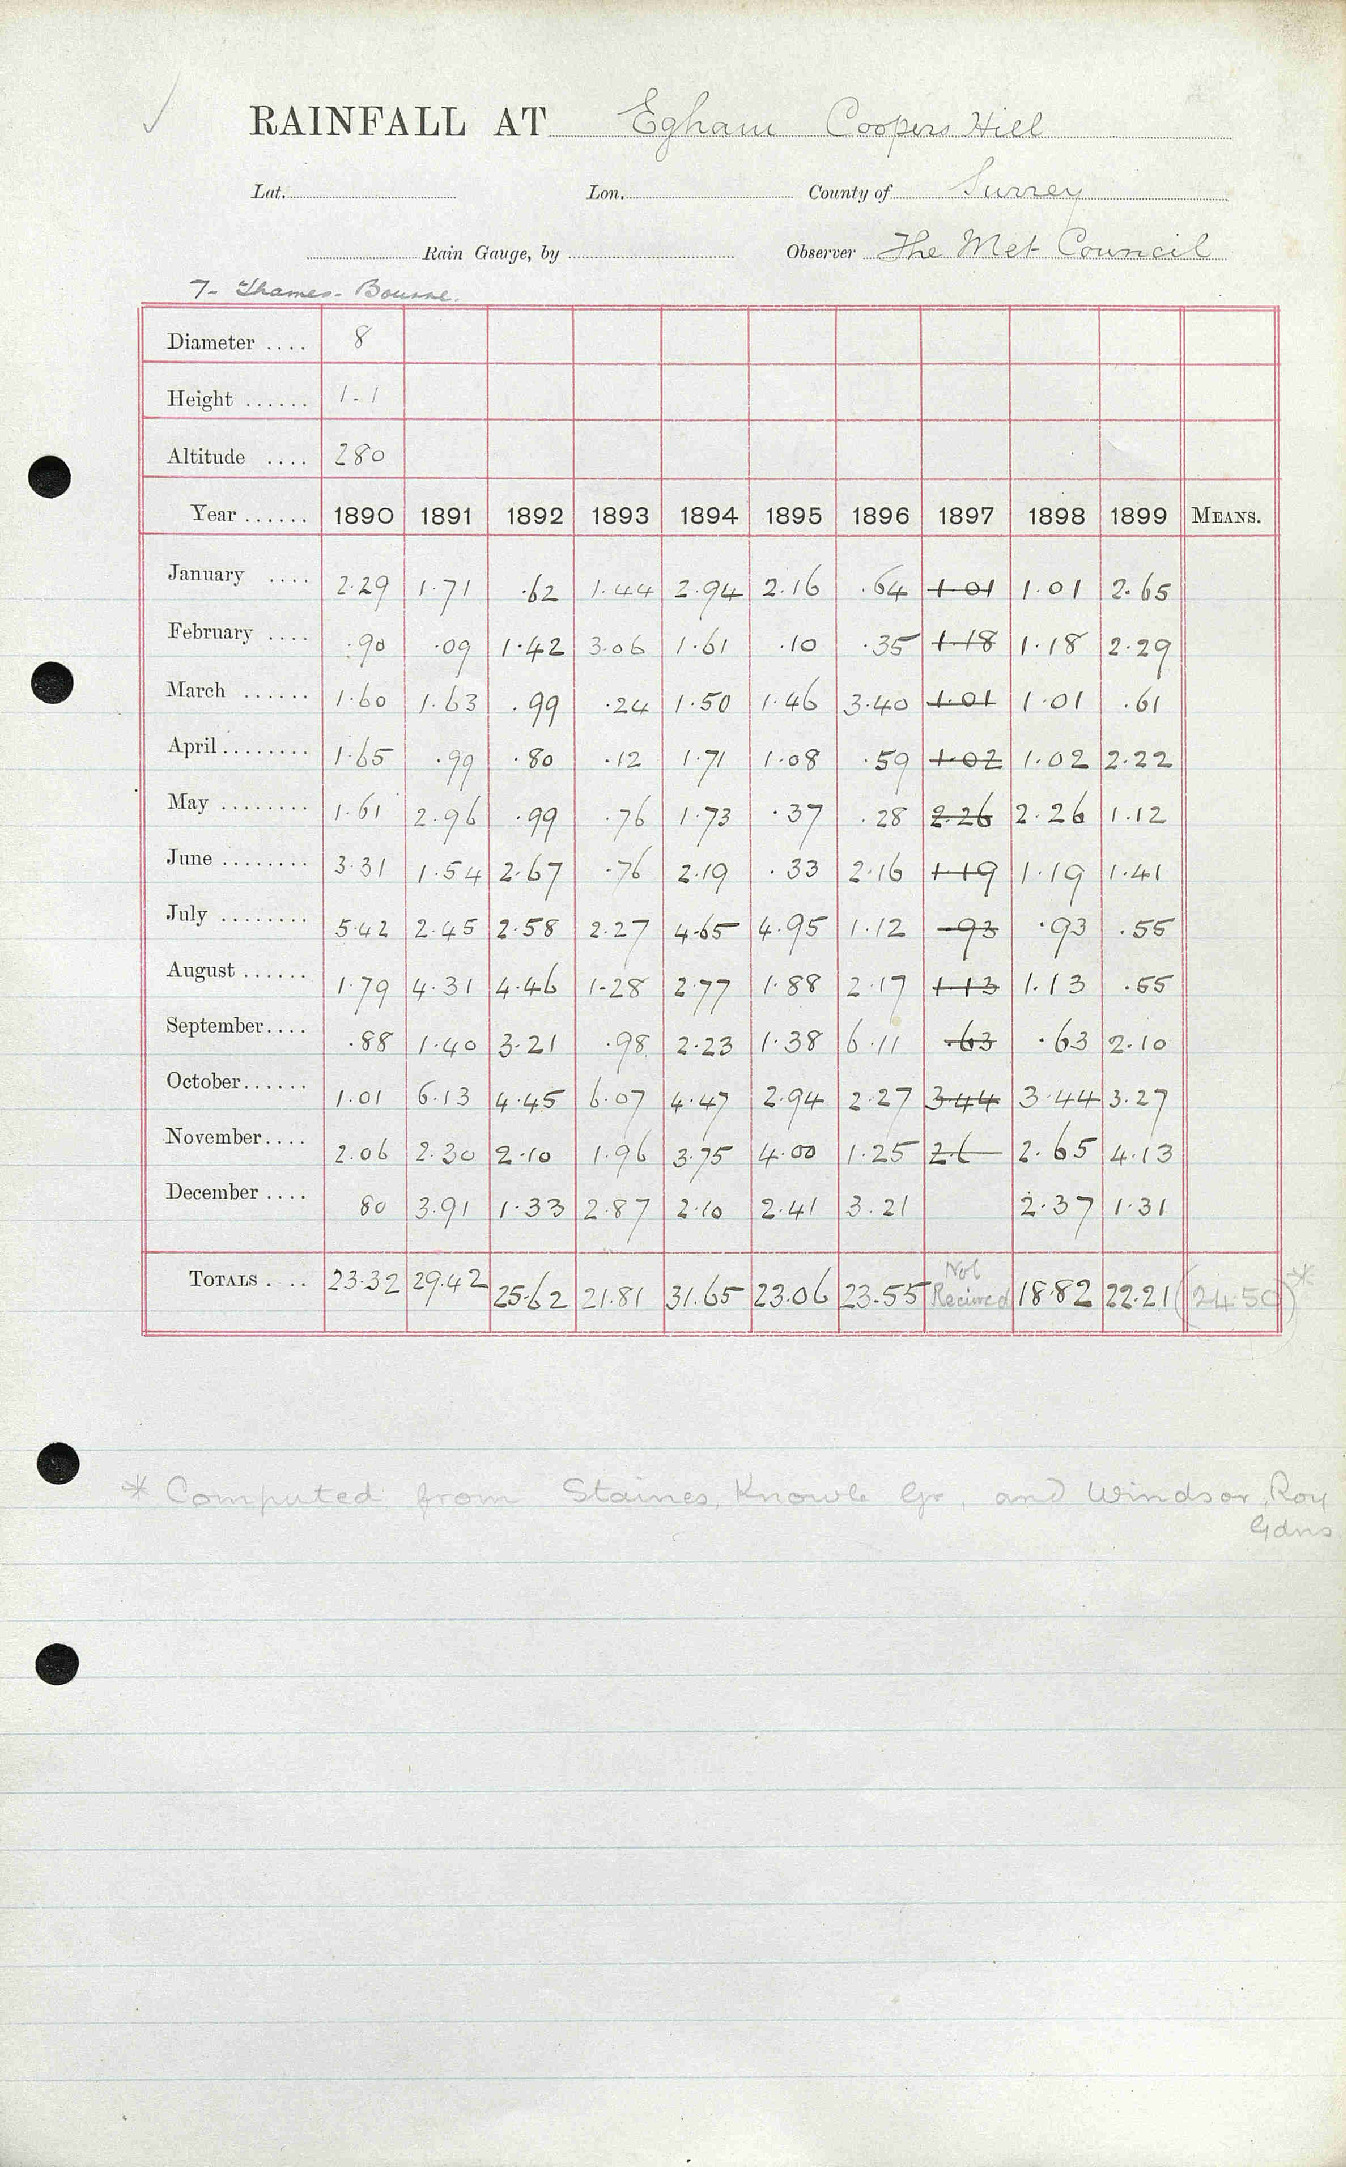 RAINFALL AT Egham Coopers Hill
Lat. Lon. County of Surrey
Rain Gauge, by Observer The Met Council
7- Thames - Bourne.
Diameter .... 8
Height ...... 1-1
Altitude .... 280
Year ...... 1890 1891 1892 1893 1894 1895 1896 1897 1898 1899 MEANS.
January .... 2.29 1.71 .62 1.44 2.94 2.16 .64 1.01 1.01 2.65
February .... .90 .09 1.42 3.06 1.61 .10 .35 1.18 1.18 2.29
March ...... 1.60 1.63 .99 .24 1.50 1.46 3.40 1.01 1.01 .61
April ........ 1.65 .99 .80 .12 1.71 1.08 .59 1.02 1.02 2.22
May ........ 1.61 2.96 .99 .76 1.73 .37 .28 2.26 2.26 1.12
June ........ 3.31 1.54 2.67 .76 2.19 .33 2.16 1.19 1.19 1.41
July ........ 5.42 2.45 2.58 2.27 4.65 4.95 1.12 .93 .93 .55
August ...... 1.79 4.31 4.46 1.28 2.77 1.88 2.17 1.13 1.13 .55
September.... .88 1.40 3.21 .98 2.23 1.38 6.11 .63 .63 2.10
October...... 1.01 6.13 4.45 6.07 4.47 2.94 2.27 3.44 3.44 3.27
November.... 2.06 2.30 2.10 1.96 3.75 4.00 1.25 2.6 2.65 4.13
December .... 80 3.91 1.33 2.87 2.10 2.41 3.21 2.37 1.31
TOTALS . .. 23.32 29.42 25.62 21.81 31.65 23.06 23.55 Not Recieved 18.82 22.21 (24.50)*
* Computed from Staines, Knowle Gr, and Windsor, Roy
Gdns